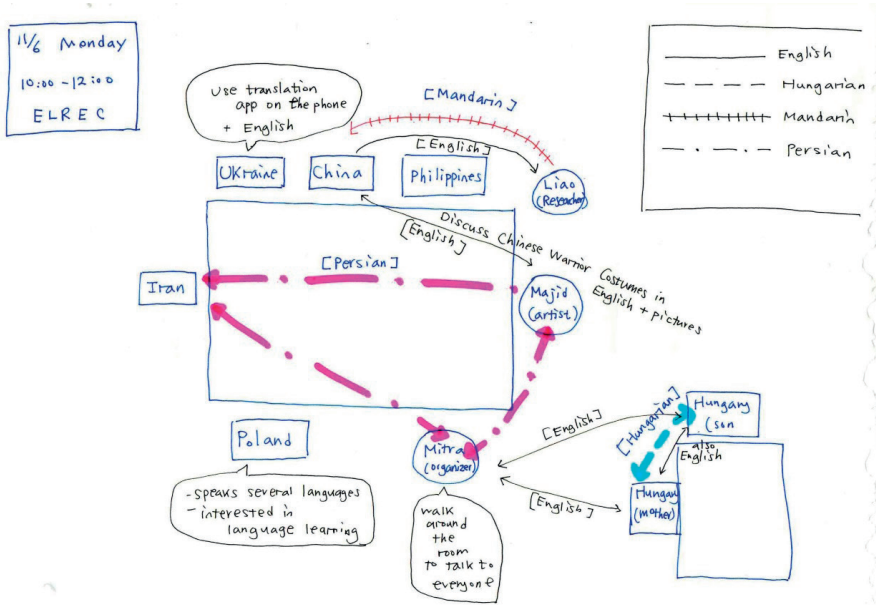 11/6 Monday
10:00 - 12:00
ELREC
English
Hungarian
Mandarin
Persian
Use translation
app on the phone
+ English
[Mandarin]
[English]
Ukraine
China
Philippines
Liao
(Researcher)
Discuss Chinese Warrior Costumes in
English + pictures
[English]
[Persian]
Iran
Majid
(artist)
Poland
- speaks several languages
- interested in
language learning
Mitra
(organizer)
walk
around
the
room
to talk to
everyone
[English]
[Hungarian]
Hungary
(son
also
English
[English]
Hungary
(mother)